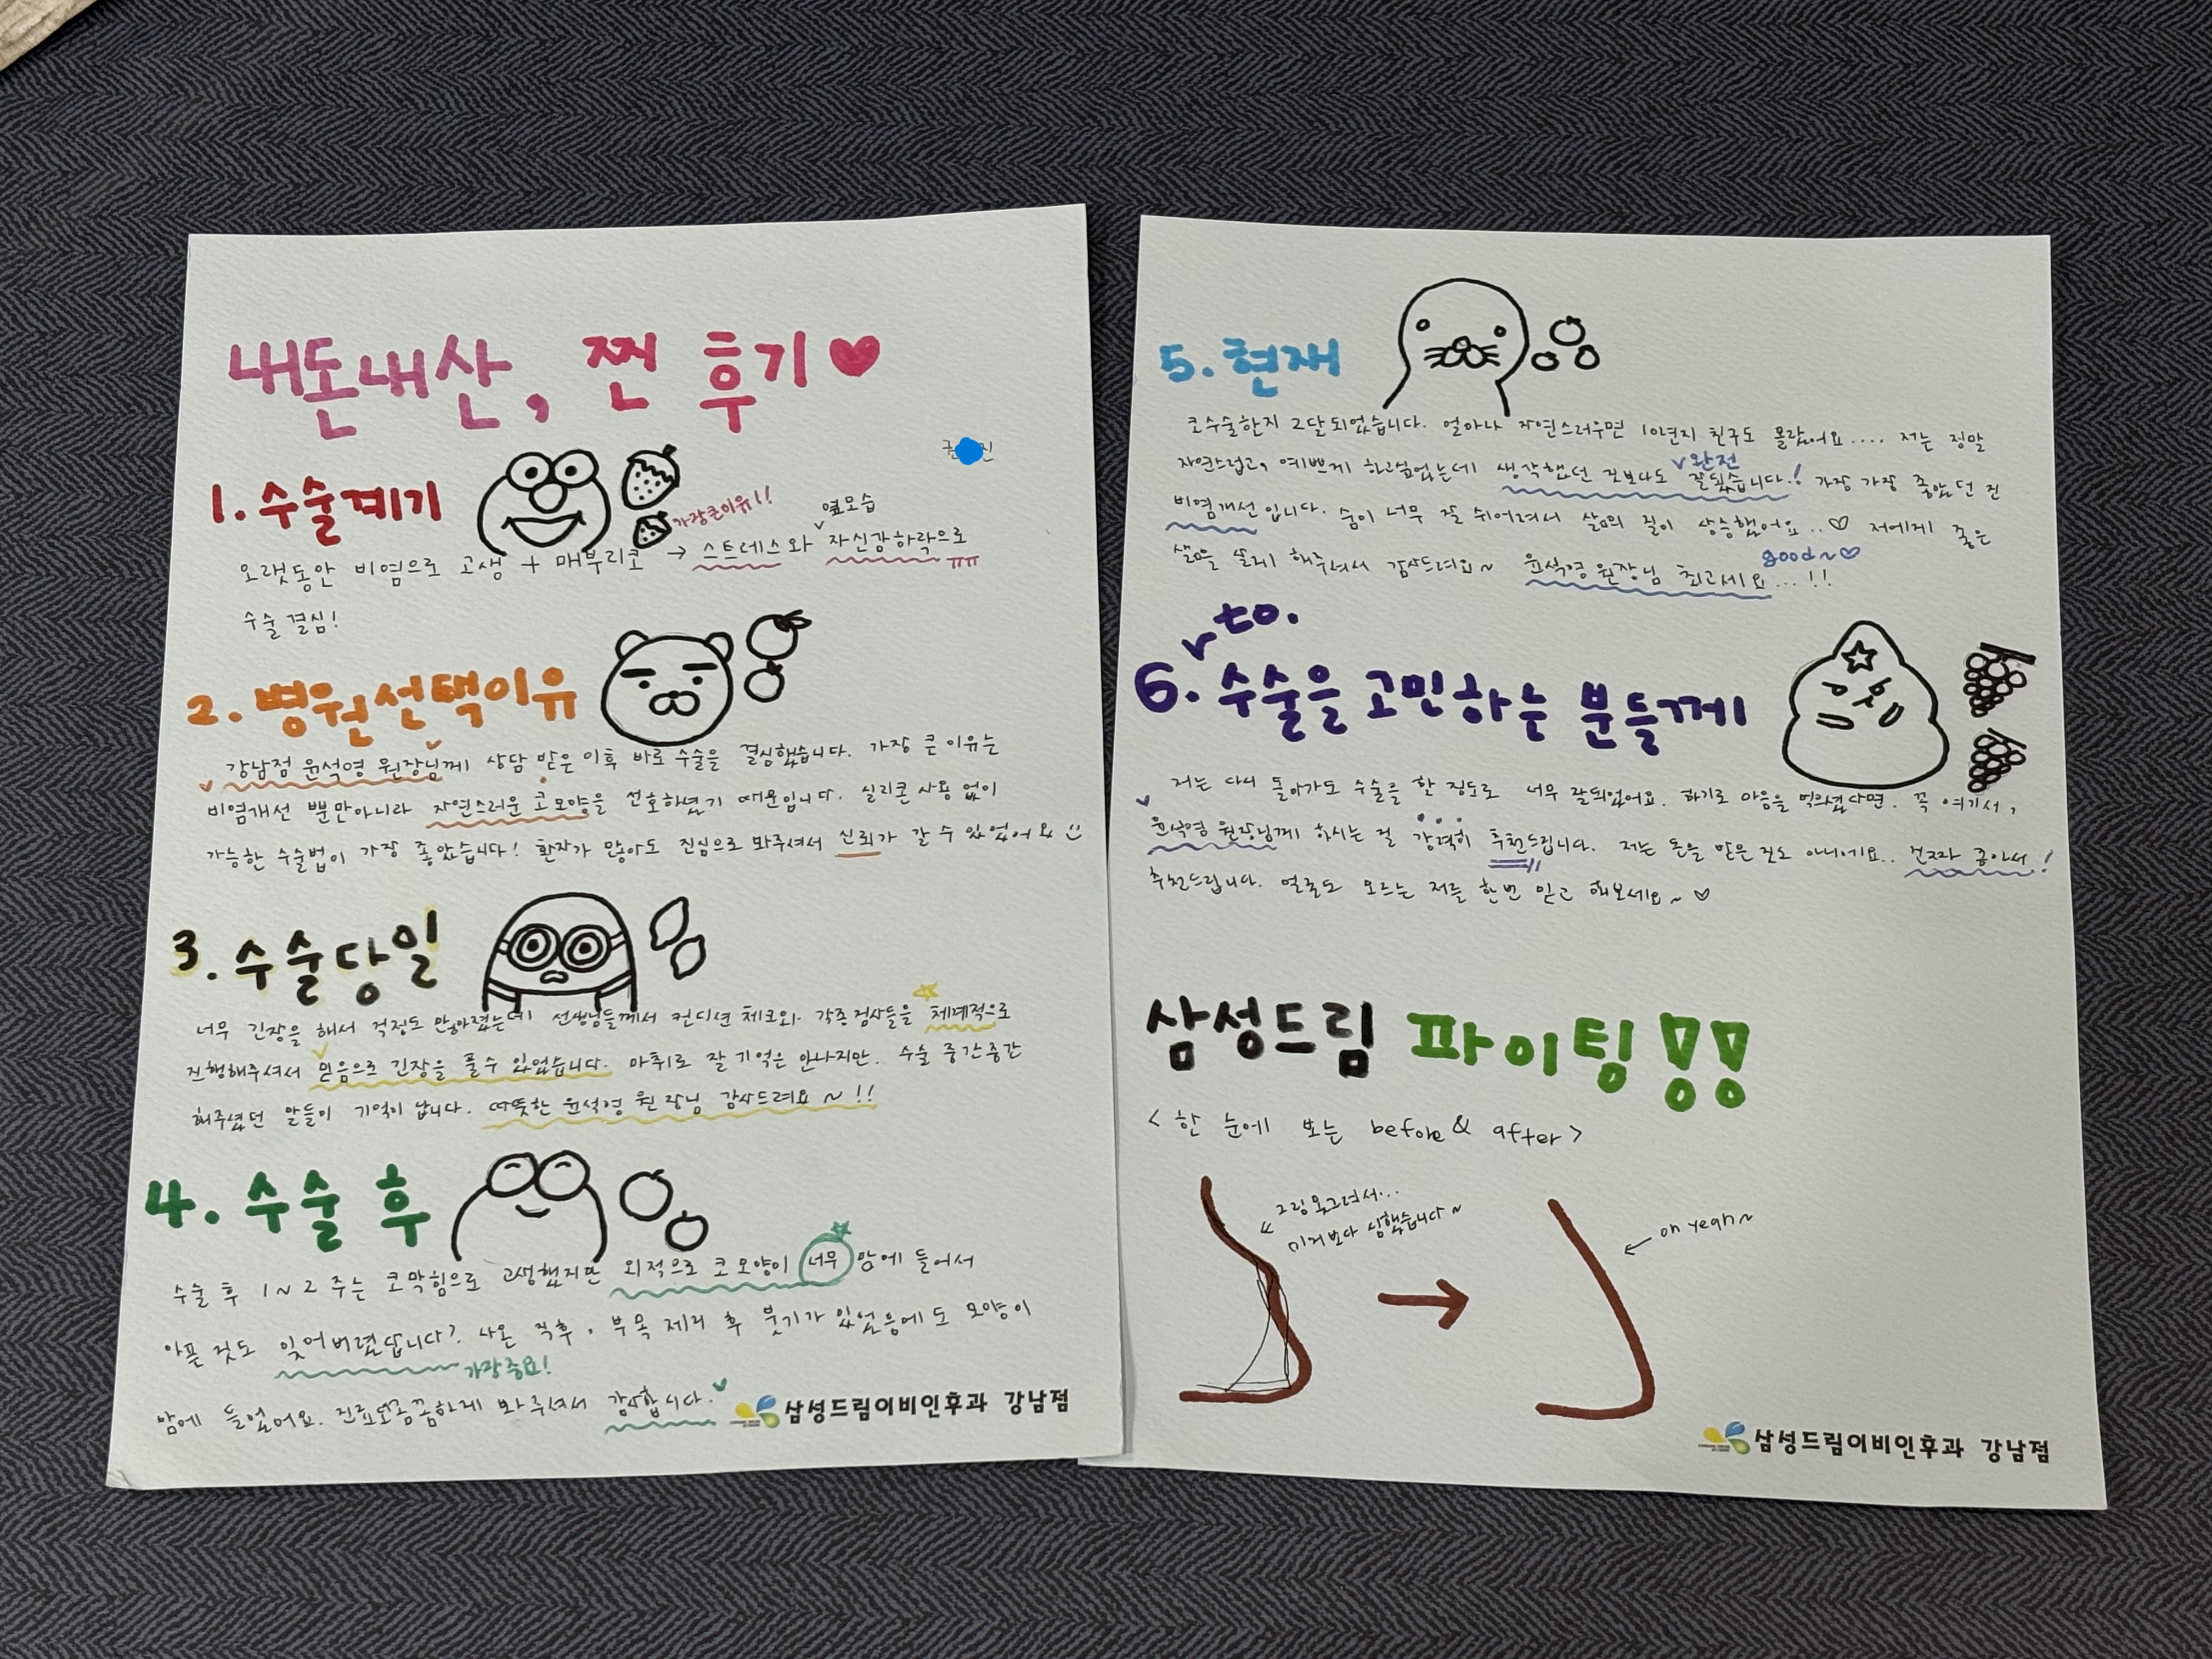 내돈내산, 찐 후기♥
1. 수술계기
가장큰이유!!
오랫동안 비염으로 고생 + 매부리코 → 스트레스와 옆모습 자신감하락으로 ㅠㅠ
수술 결심!
2. 병원선택이유
강남점 윤석영 원장님께 상담 받은 이후 바로 수술을 결심했습니다. 가장 큰 이유는
비염개선 뿐만아니라 자연스러운 코모양을 선호하셨기 때문입니다. 실리콘 사용 없이
가능한 수술법이 가장 좋았습니다! 환자가 많아도 진심으로 봐주셔서 신뢰가 갈 수 있었어요
3. 수술당일
너무 긴장을 해서 걱정도 많아졌는데 선생님들께서 컨디션 체크와 각종검사들을 체계적으로
진행해주셔서 믿음으로 긴장을 풀수 있었습니다. 마취로 잘 기억은 안나지만. 수술 중간중간
해주셨던 말들이 기억이 납니다. 따뜻한 윤석영 원장님 감사드려요~!!
4. 수술 후
수술 후 1~2 주는 코막힘으로 고생했지만 외적으로 코모양이 너무 맘에 들어서
아픈 것도 잊어버렸답니다? 사온 직후, 부목 제거 후 붓기가 있었음에도 모양이
가장중요!
맘에 들었어요. 진료도꼼꼼하게 봐주셔서 감사합니다.
삼성드림이비인후과 강남점
5. 현재
코수술한지 2달되었습니다. 얼마나 자연스러우면 10년지 친구도 몰랐어요.... 저는 정말
자연스럽고, 예쁘게 하고싶었는데 생각했던 것보다도 완전 잘됐습니다.! 가장 가장 좋았던 건
비염개선입니다. 숨이 너무 잘 쉬어려서 삶의 질이 상승했어요..♡ 저에게 좋은
good~♡
삶을 살게 해주셔서 감사드려요~ 윤석영원장님 최고세요...!!
6. to. 수술을 고민하는 분들께
저는 다시 돌아가도 수술을 할 정도로 너무 잘되었어요. 하기로 마음을 먹으셨다면. 꼭 여기서,
윤석영 원장님께 하시는 걸 강력히 추천드립니다. 저는 돈을 받은것도 아니에요.. 진짜 좋아서!
추천드립니다. 얼굴도 모르는 저를 한번 믿고 해보세요~♡
삼성드림 파이팅!!
<한 눈에 보는 before & after>
그림 못그려서...
이거보다 심했습니다~
oh yeah~
삼성드림이비인후과 강남점